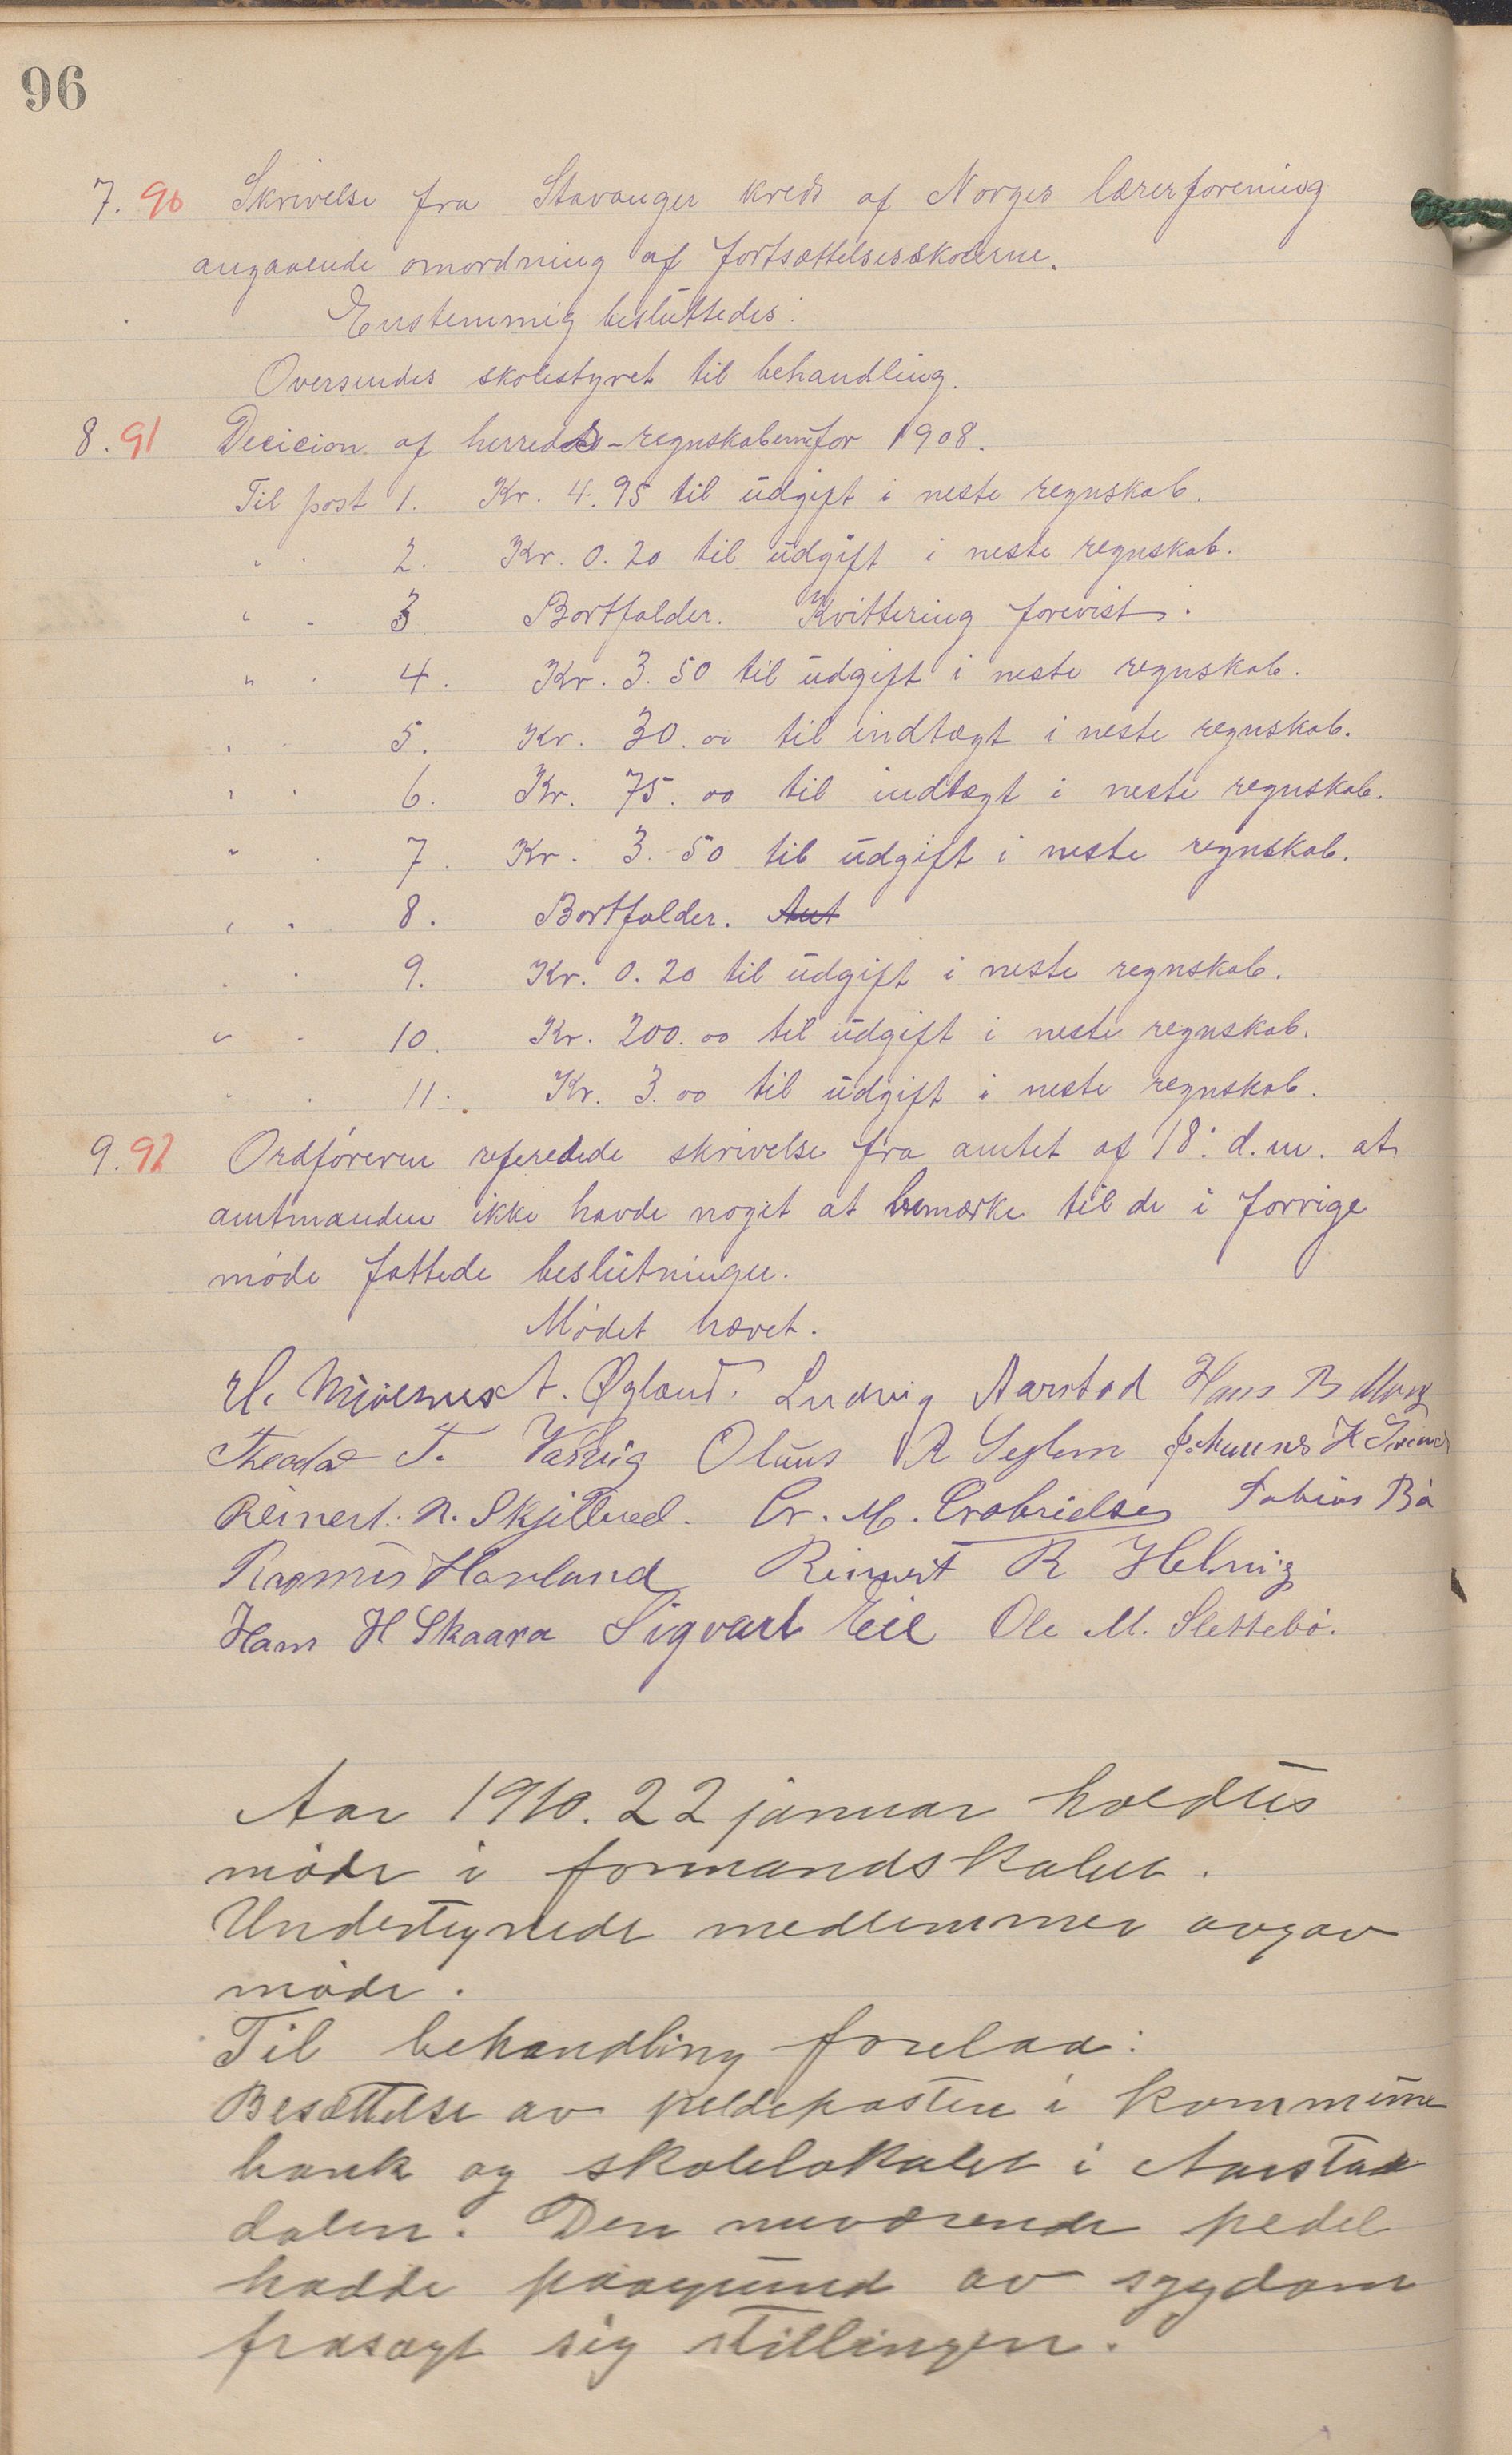 96
7. 90 Skrivelse fra Stavanger kreds af Norges lærerforening
angaaende omordning af fortsættelsesskolerne.
Enstemmig besluttedes:
Oversendes skolestyret til behandling.
8. 91 Decicion af herreds-regnskaberne for 1908.
Til post 1. Kr. 4.95 til udgift i neste regnskab.
" " 2. Kr. 0.20 til udgift i neste regnskab.
" " 3 Bortfalder. Kvittering forevist.
" " 4. Kr. 3.50 til udgift i neste regnskab.
" " 5. Kr. 30.00 til indtægt i neste regnskab.
" " 6. Kr. 75.00 til indtægt i neste regnskab.
" " 7. Kr. 3.50 til udgift i neste regnskab.
" " 8. Bortfalder. Aut
" " 9. Kr. 0.20 til udgift i neste regnskab.
" " 10. Kr. 200.00 til udgift i neste regnskab.
" " 11. Kr. 3.00 til udgift i neste regnskab.
9. 92 Ordføreren refererede skrivelse fra amtet af 18. d.m. at
amtmanden ikke havde noget at bemærke til de i forrige
møde fattede beslutninger.
Mødet hævet.
A. Øgland. Ludvig Aarstad Hans B
Theodor T. Vashus Oluus R Seglem Johannes H
Reinert. N. Skjelbred. Gr. M. Gabrielsen Tobias Bø
Rasmus Havland Reinert R Helvig
Hans H Skaara Sigvart Eie Ole M. Slettebø.
Aar 1910. 22 januar holdtes
møde i formandskabet.
Undertegnede medlemmer avgav
møde.
Til behandling forelaa:
Besættelse av peldeposten i kommune
bank og skolelokalet i Aarstad
dalen. Den nuværende pedel
hadde paagrund av sygdom
frasagt sig stillingen.